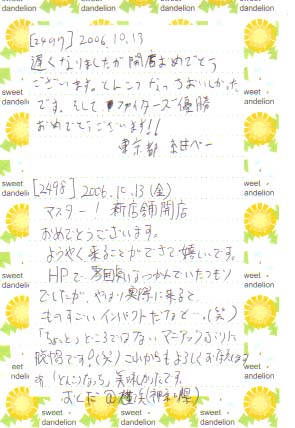 [2497] 2006.10.13
遅くなりましたが開店おめでとう
ございます。とんこつなっちおいしかった
です。そして ファイターズ優勝
おめでとうございます!!
東京都
[2498] 2006.10.13(金)
マスター! 新店舗開店
おめでとうございます。
ようやく来ることができて嬉しいです。
HPで雰囲気はつかんでいたつもり
でしたが、やはり実際に来ると
ものすごいインパクトだなと…。(笑)
「ちょっと」どころではない マニアックぶりに
脱帽です!(笑) これからもよろしくお願いします
「とんこつなっち」美味しかったです。
@横浜(神奈川県)
sweet dandelion
sweet dandelion
sweet dandelion
sweet dandelion
sweet dandelion
sweet dandelion
sweet dandelion
sweet dandelion